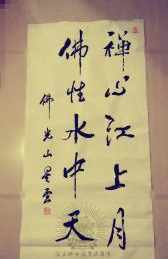 禪心江上月
佛性水中天
佛光山星雲